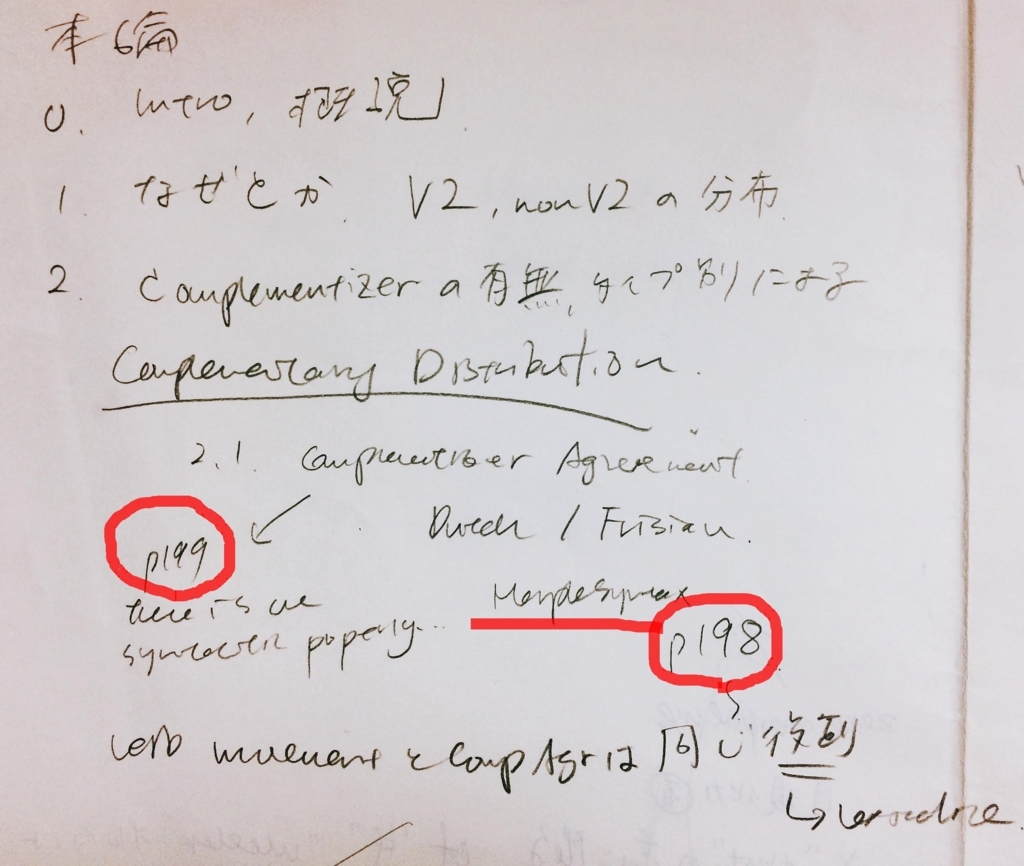 本6扁
0. Intro, 概説
1 なぜとか V2, nonV2の分布
2. Complementizerの有無, タイプ別による
Complementary Distribution.
2.1. Complementizer Agreement
Dutch / Frisian.
p199
there is one
syntactic property...
MorphoSyntax
p198
verb movement と Comp Agrは同じ役割